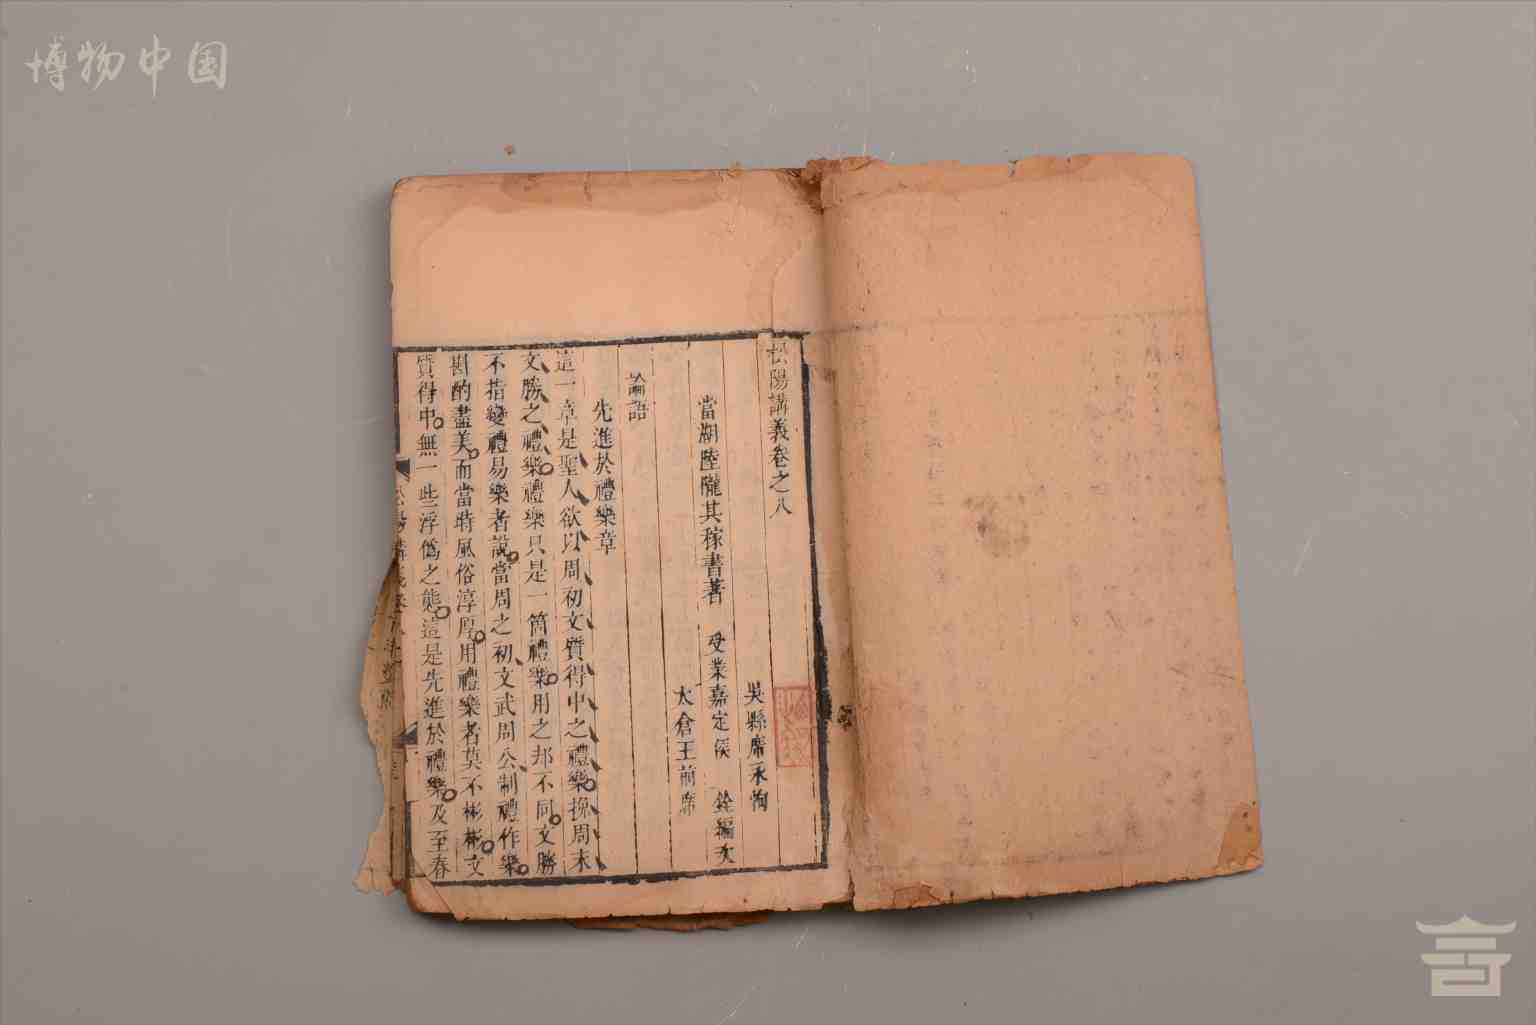 博物中国
松陽講義卷之八
吳縣席永恂
當湖陸隴其稼書著 受業嘉定侯 銓編次
太倉王前席
論語
先進於禮樂章
這一章是聖人欲以周初文質得中之禮樂挽周末
文勝之禮樂禮樂只是一箇禮樂用之却不同文勝
不指變禮易樂者說當周之初文武周公制禮作樂
斟酌盡美而當時風俗淳厚用禮樂者莫不彬彬文
質得中無一些浮僞之態這是先進於禮樂及至春